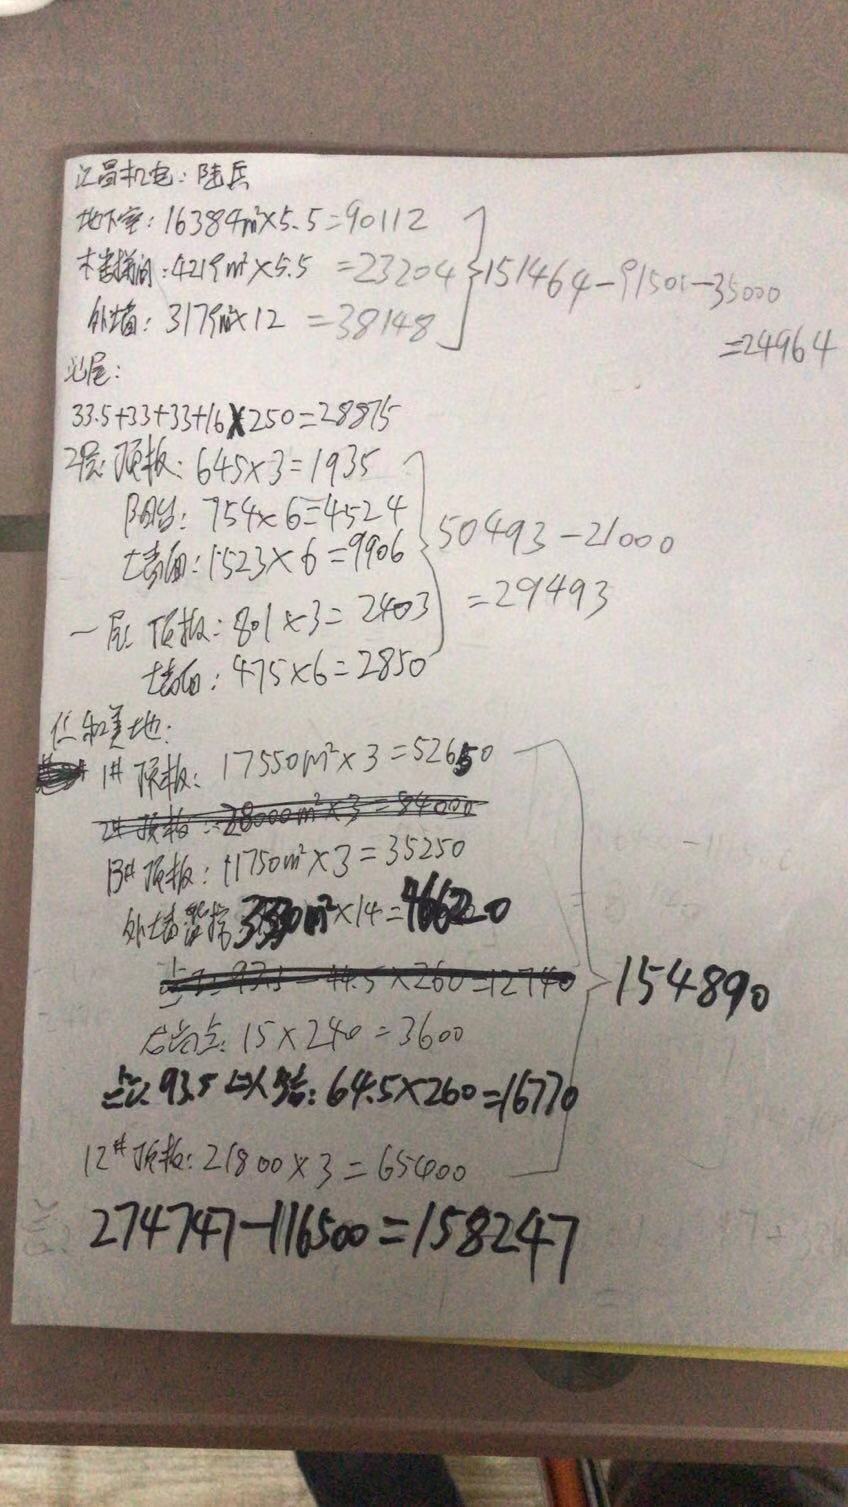 汇昌机电：陆兵
地下室：16384m²×5.5=90112
楼梯间：4219m²×5.5=23204
外墙：3179m²×12=38148
151464-91501-35000
=24964
33.5+33+33+16×250=28875
2层：顶板：645×3=1935
阳台：754×6=4524
墙面：1523×6=9906
50493-21000
=29493
一层 顶板：801×3=2403
墙面：475×6=2850
仁和美地：
1# 顶板：17550m²×3=52650
2# 顶板：28000m²×3=84000
13# 顶板：11750m²×3=35250
外墙 3330m²×14=46620
93.5-44.5×260=12740
点：15×240=3600
93.5 64.5×260=16770
154890
12# 顶板：21800×3=65400
274747-116500=158247